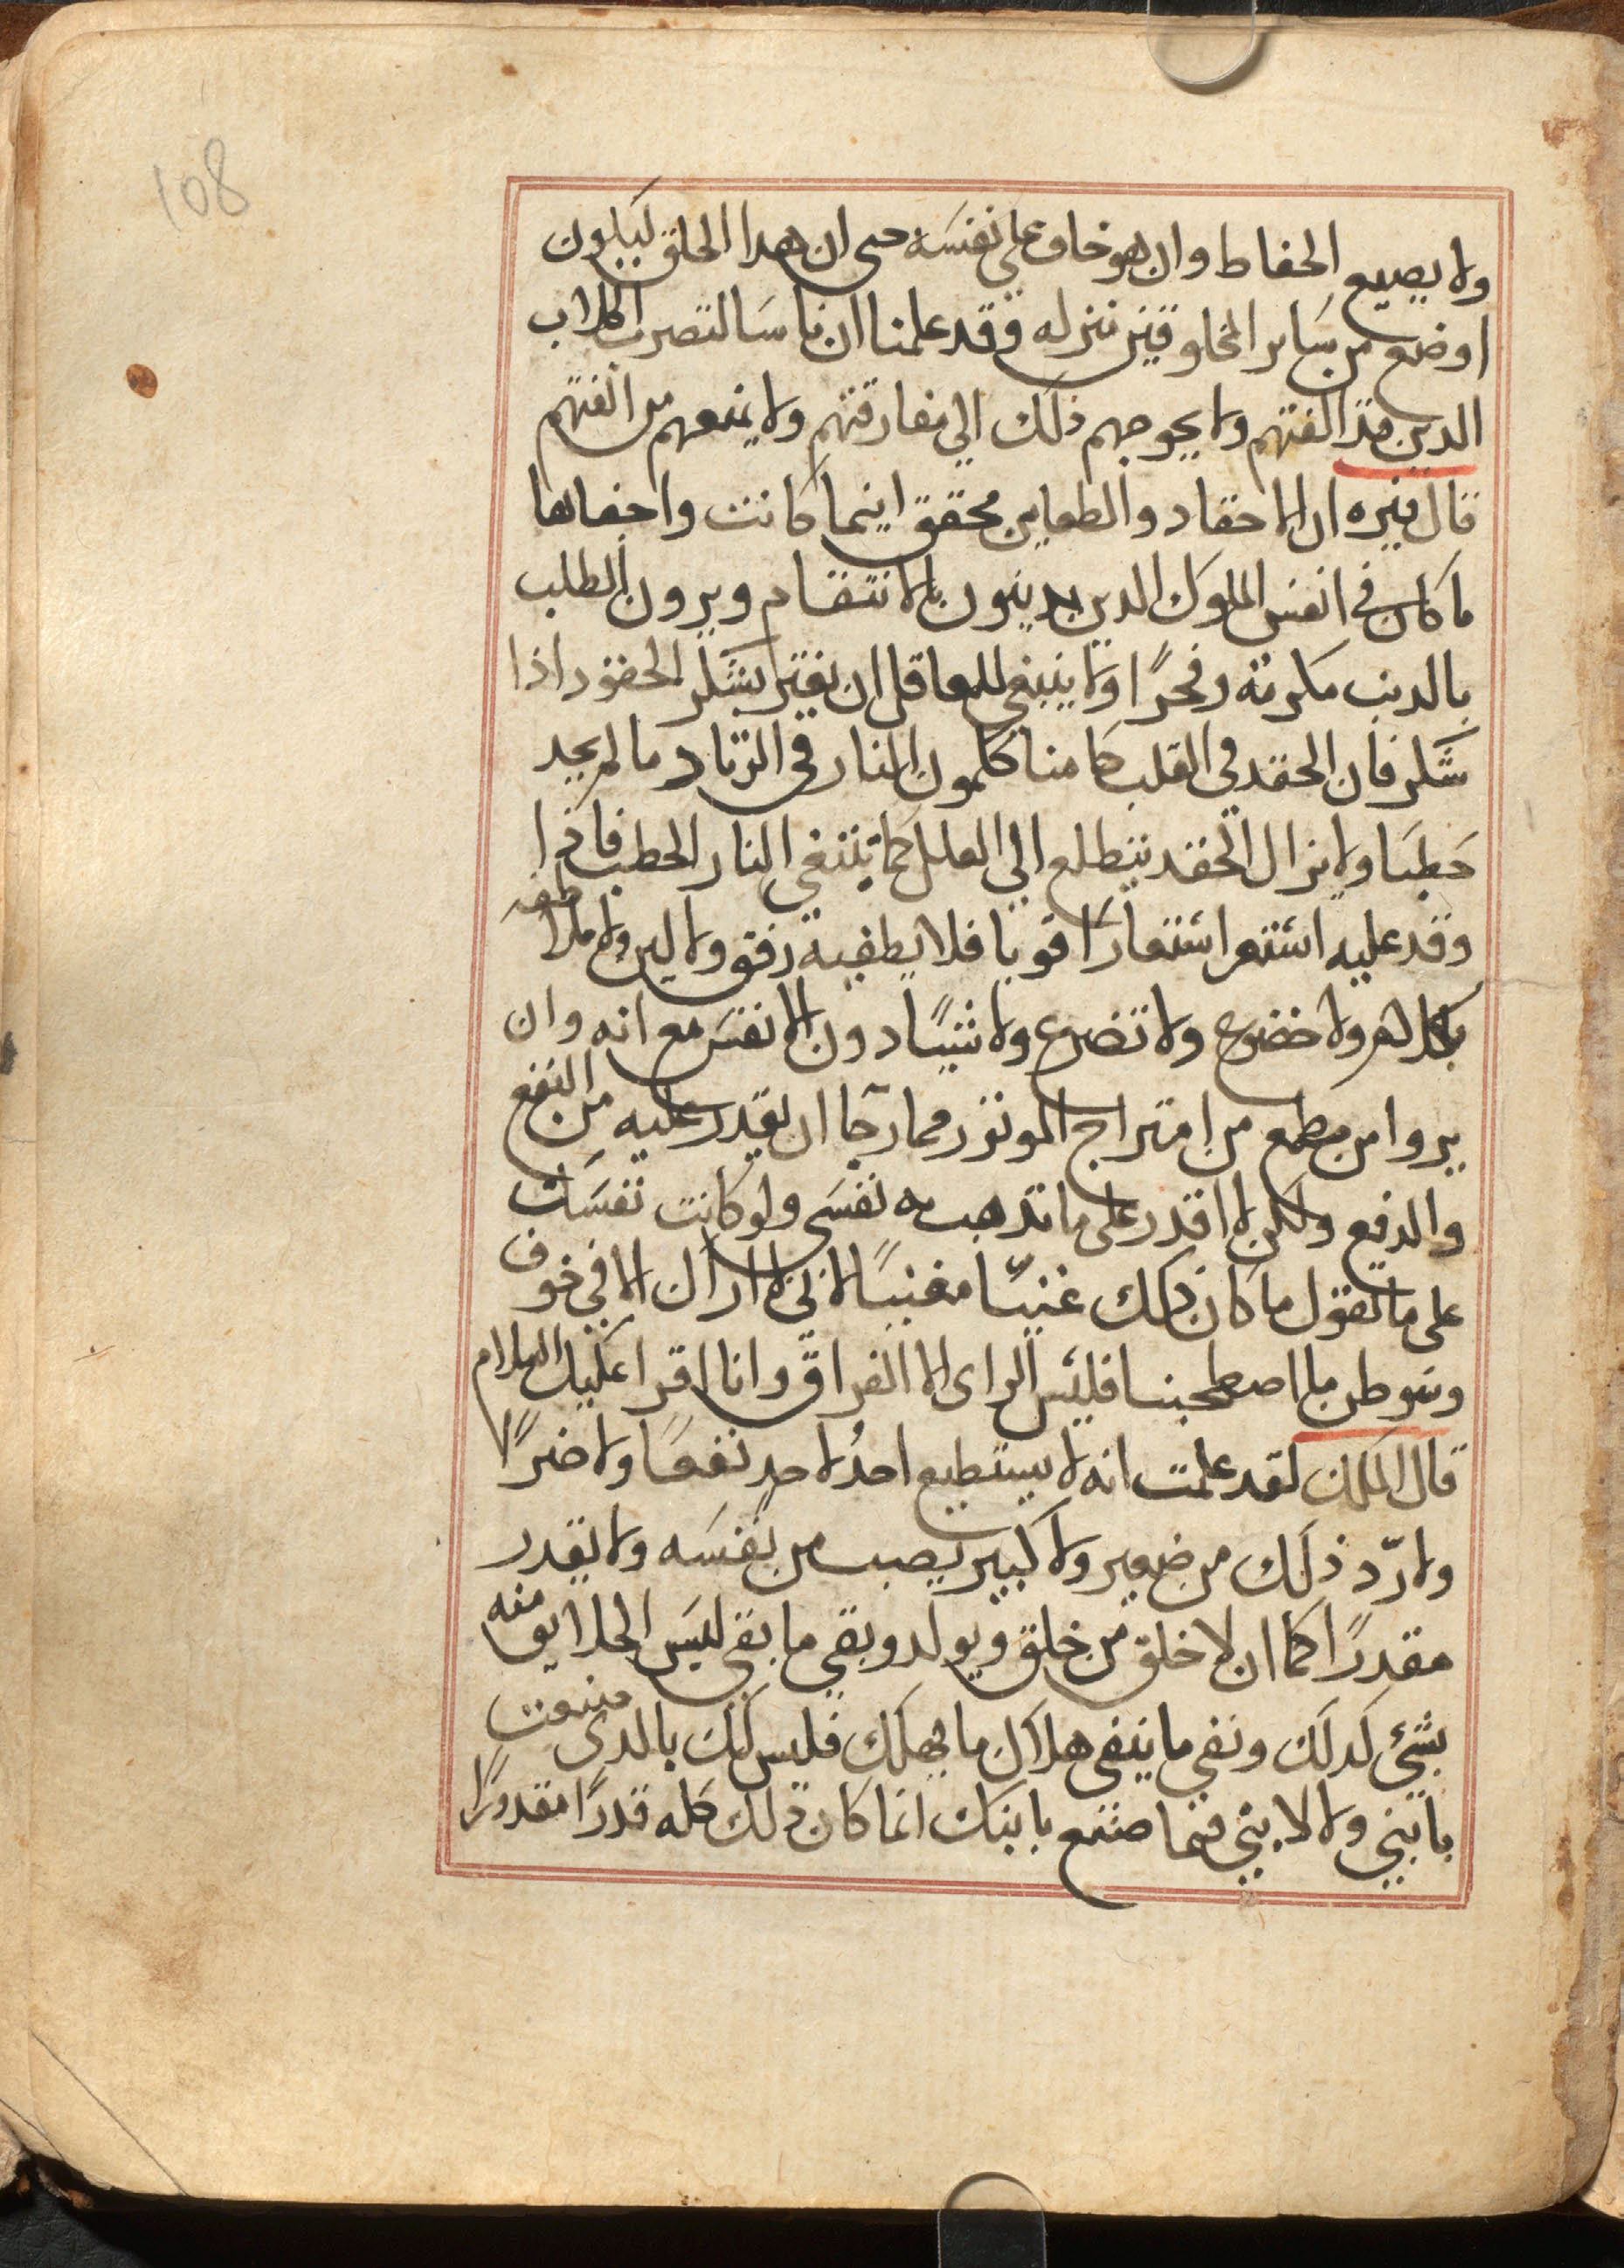 108
ولا يصيع الحفاط وان هو خاف على نفسه حتى ان هدا الخلق ليكون
اوضع من ساير المخلوقين منزله وقد علمنا ان ناسا لتصرب الكلاب
الدين قد الفتهم ولا يحوجهم ذلك الي مفارقتهم ولا يمنعهم من الفتهم
قال فنزه ان الاحقاد والطعاين محقق اينما كانت واخفاها
ما كان في انفس الملوك الدين يدينون بالانتقام ويرون الطلب
بالدنب مكرمة وفخرًا ولا ينبغي للعاقل ان يغتر بسكر الحقود اذا
سكر فان الحقد في القلب كامنا ككمون النار في الزناد ما لم يجد
حطبا ولا يزال الحقد يتطلع الي العلل كما تبتغي النار الحطب فاذا
وقد عليه استعر استعارًا قويا فلا يطفيه رفق ولا لين ولا ملاطفه
بكلام ولا خضوع ولا تضرع ولا شيًا دون الانفس مع انه وان
يروا من مطمع من امتزاج الموتور مما رجا ان يقدر عليه من النفع
والدفع ولكن لا اقدر على ما تدهب به نفسي ولو كانت نفسك
على ما تقول ما كان ذلك عنيّا مغنيًا لاني لا ازال الا في خوف
وسوطن ما اصطحبنا فليس الراى الا الفراق وانا اقرا عليك السلام
قال الملك لقد علمت انه لا يستطيع احدُ لاحدٍ نفعًا ولا ضرًا
ولا ردّ ذلك من صغير ولا كبير يصب من نفسه ولا يقدر
مقدرًا كما ان لا خلق من خلق ويولد وبقي ما بقي ليس الخلايق منه
بشئ كدلك ونفى ما ينفى هلاك ما يهلك فليس لك بالدى صنعت
بابني ولا لابني فيما صنع بابنك انما كان ذلك كله قدرًا مقدورًا